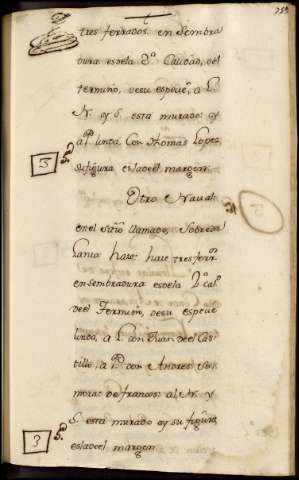 tres ferrados en sembra
dura es de la 2ª Calidad, del
termino, de su espeuê, a L.
N. y S. esta murado; ay
a P. linda Con thomas Lopez
su figura es la del margen
3
Otro Naval
en el sitio llamado, Sobre a
Lama haze: haze tres ferr.
en sembradura es de la 2ª cal.
del Termino, de su espeue
linda, a L. con Juan del Cas
tillo, a P. con Andres Sei
moras de francos: al N. y
S. esta murado ay su figura
es la del margen
3